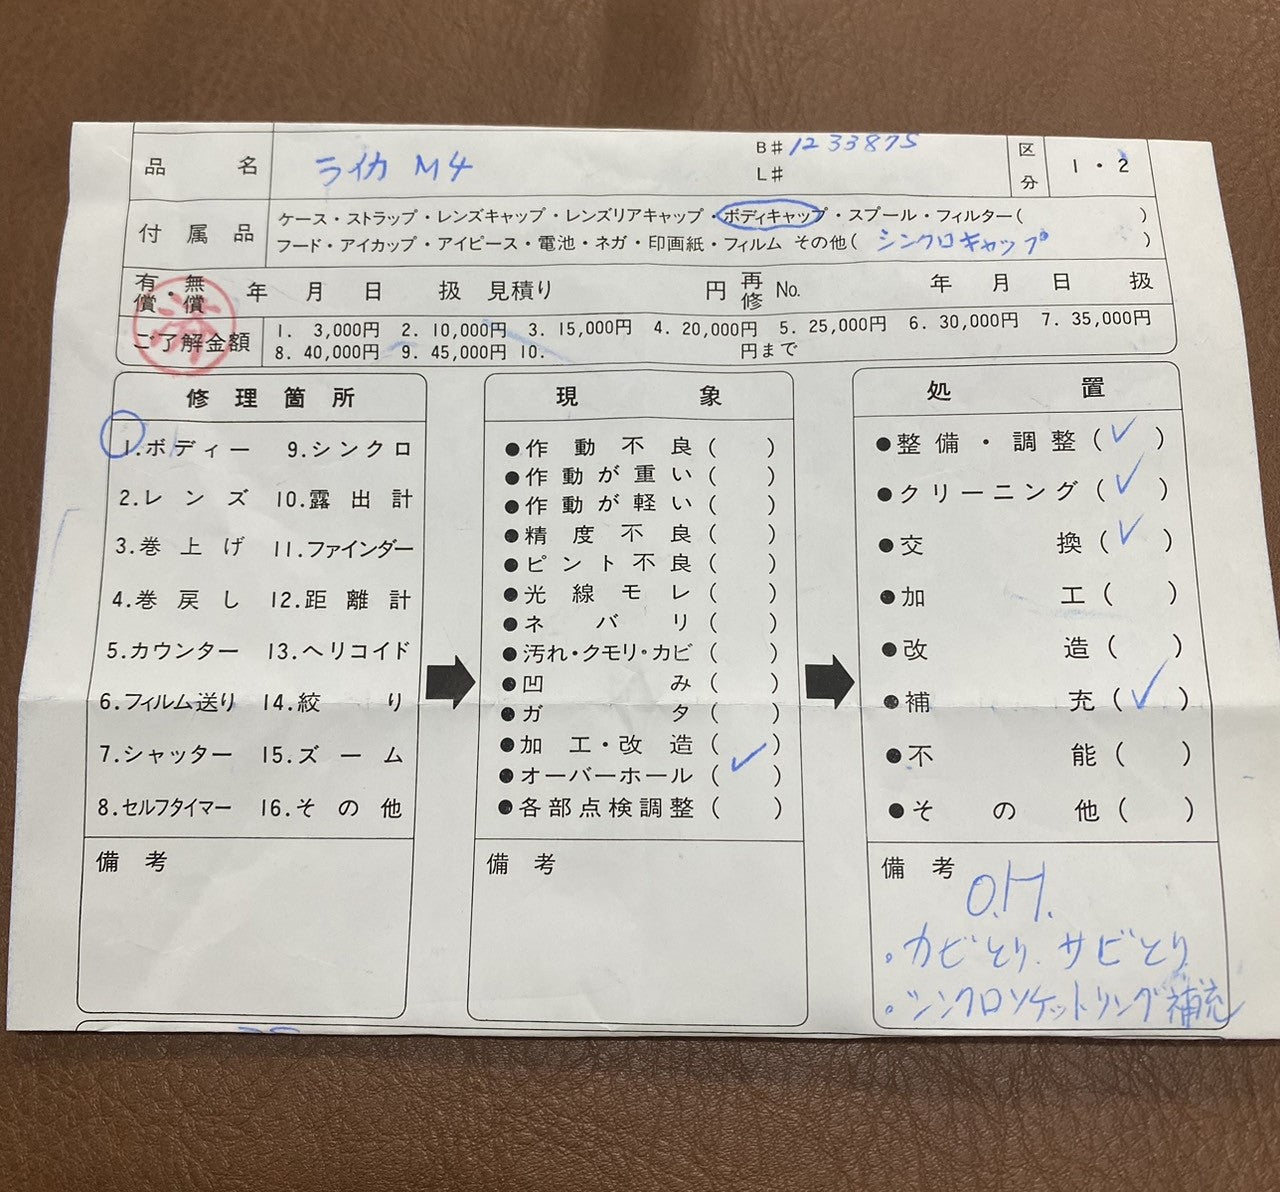 品名 ライカ M4 B# 1233875 区分 1・2
L#
付属品 ケース・ストラップ・レンズキャップ・レンズリアキャップ・ボディキャップ・スプール・フィルター( )
フード・アイカップ・アイピース・電池・ネガ・印画紙・フィルム その他( シンクロキャップ )
有償・無償 年 月 日 扱 見積り 円 再修 No. 年 月 日 扱
ご了解金額 1. 3,000円 2. 10,000円 3. 15,000円 4. 20,000円 5. 25,000円 6. 30,000円 7. 35,000円
8. 40,000円 9. 45,000円 10. 円まで
済
修理箇所
1.ボディー 9.シンクロ
2.レンズ 10.露出計
3.巻上げ 11.ファインダー
4.巻戻し 12.距離計
5.カウンター 13.ヘリコイド
6.フィルム送り 14.絞り
7.シャッター 15.ズーム
8.セルフタイマー 16.その他
備考
現象
●作動不良( )
●作動が重い( )
●作動が軽い( )
●精度不良( )
●ピント不良( )
●光線モレ( )
●ネバリ( )
●汚れ・クモリ・カビ( )
●凹み( )
●ガタ( )
●加工・改造( )
●オーバーホール(✓)
●各部点検調整( )
備考
処置
●整備・調整(✓)
●クリーニング(✓)
●交換(✓)
●加工( )
●改造( )
●補充(✓)
●不能( )
●その他( )
備考 O.H.
。カビとり.サビとり
。シンクロソケットリング補充